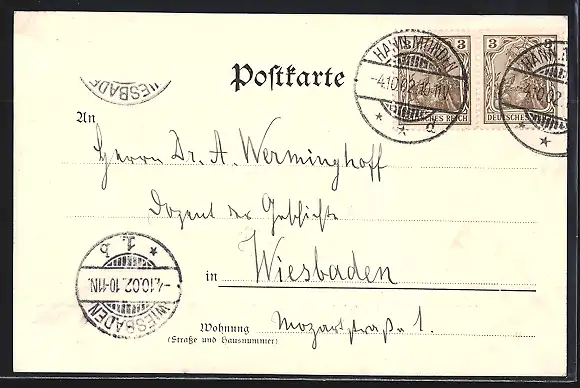 3 3
HANN. MÜNDEN HANN.
-4.10.02.10-11V. -4.10.02.
* * a * *
DEUTSCHES REICH DEUTSCHES
WIESBADEN
Postkarte
An
Herrn Dr. A. Werminghoff
Dozent der Geschichte
in Wiesbaden
* 1. b *
-4.10.02.10-11N.
WIESBADEN
Wohnung Mozartstraße 1.
(Straße und Hausnummer)